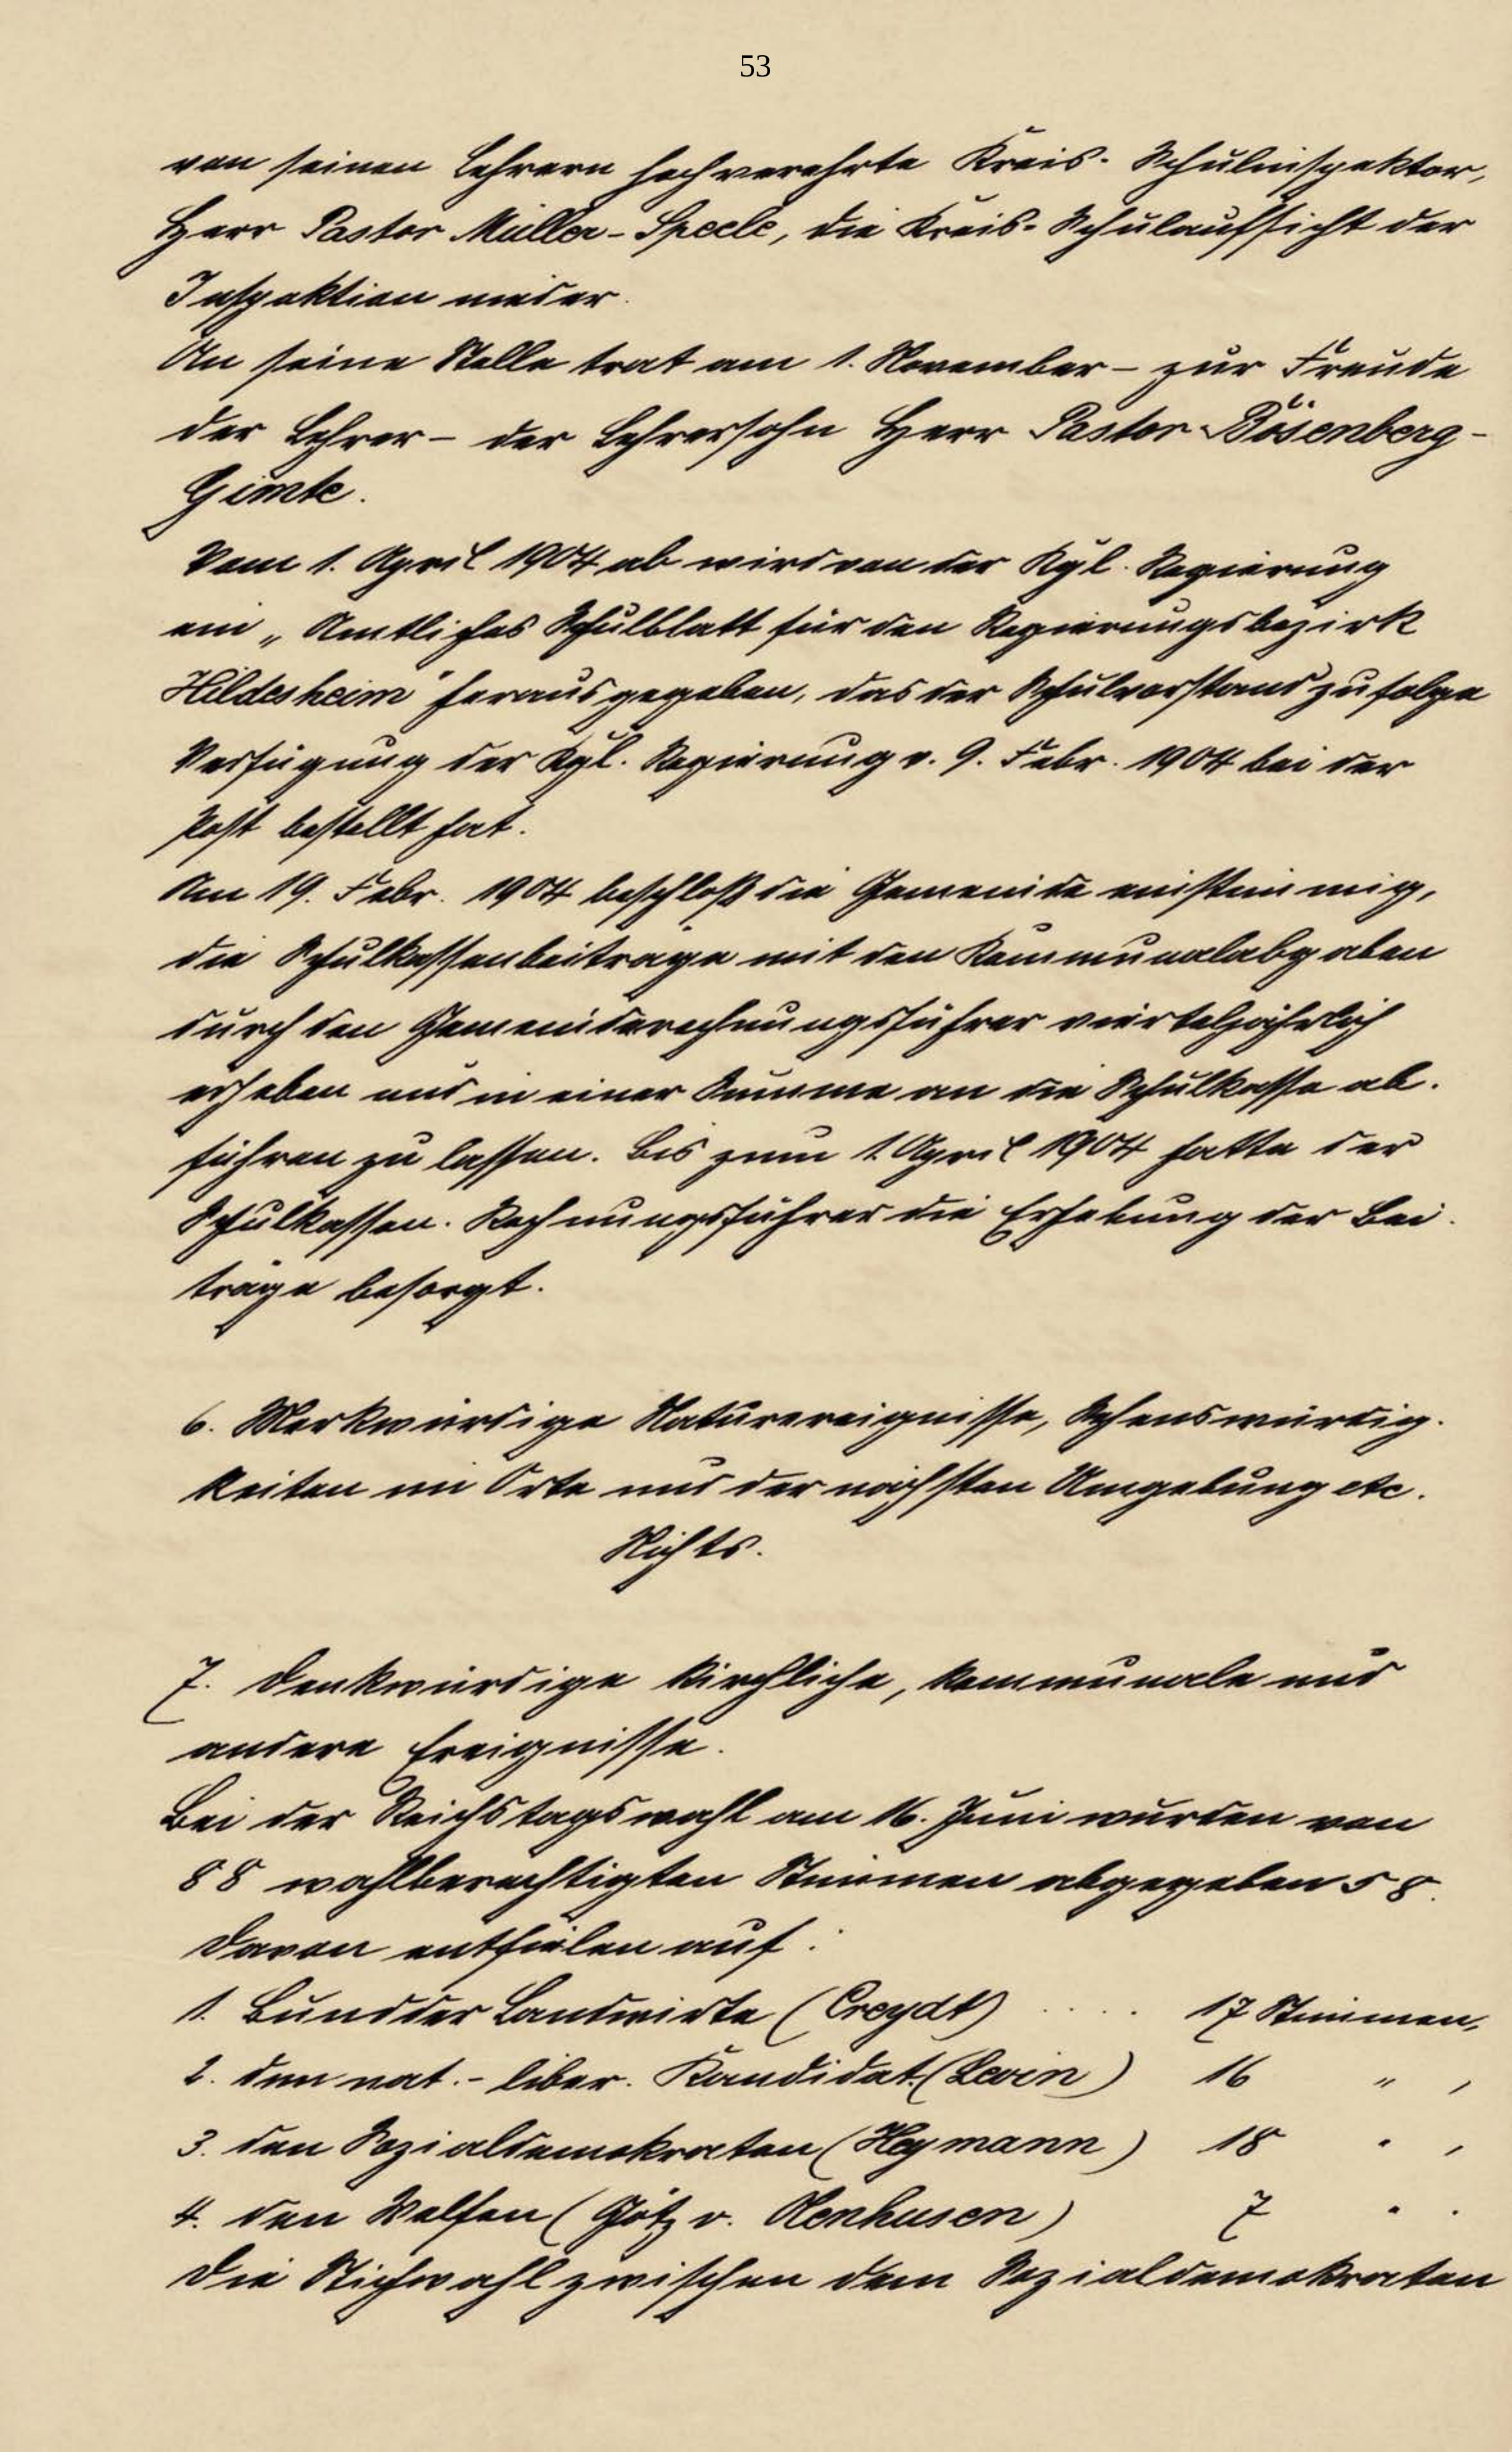 53
von seinen Lehrern hochverehrte Kreis-Schulinspektor,
Herr Pastor Müller-Speele, die Kreis-Schulaufsicht der
Inspektion nieder.
An seine Stelle trat am 1. November – zur Freude
der Lehrer – der Lehrersohn Herr Pastor Bösenberg-
Gimte.
Vom 1. April 1904 ab wird von der Kgl. Regierung
ein „Amtliches Schulblatt für den Regierungsbezirk
Hildesheim" herausgegeben, das der Schulvorstand zufolge
Verfügung der Kgl. Regierung v. 9. Febr. 1904 bei der
Post bestellt hat.
Am 19. Febr. 1904 beschloß die Gemeinde einstimmig,
die Schulkassenbeiträge mit den Kommunalabgaben
durch den Gemeinderechnungsführer vierteljährlich
erheben und in einer Summe an die Schulkasse ab-
führen zu lassen. Bis zum 1. April 1904 hatte der
Schulkassen-Rechnungsführer die Erhebung der Bei-
träge besorgt.
6. Merkwürdige Naturereignisse, Sehenswürdig-
keiten im Orte und der nächsten Umgebung etc.
Nichts.
7. Denkwürdige kirchliche, kommunale und
andere Ereignisse.
Bei der Reichstagswahl am 16. Juni wurden von
88 wahlberechtigten Stimmen abgegeben 58.
Davon entfielen auf:
1. Bund der Landwirte (Creydt) .... 17 Stimmen,
2. den nat.-liber. Kandidat. (Levin) 16 " ,
3. den Sozialdemokraten (Heymann) 18 " ,
4. den Welfen (Götz v. Olenhusen) 7 " .
Die Stichwahl zwischen dem Sozialdemokraten